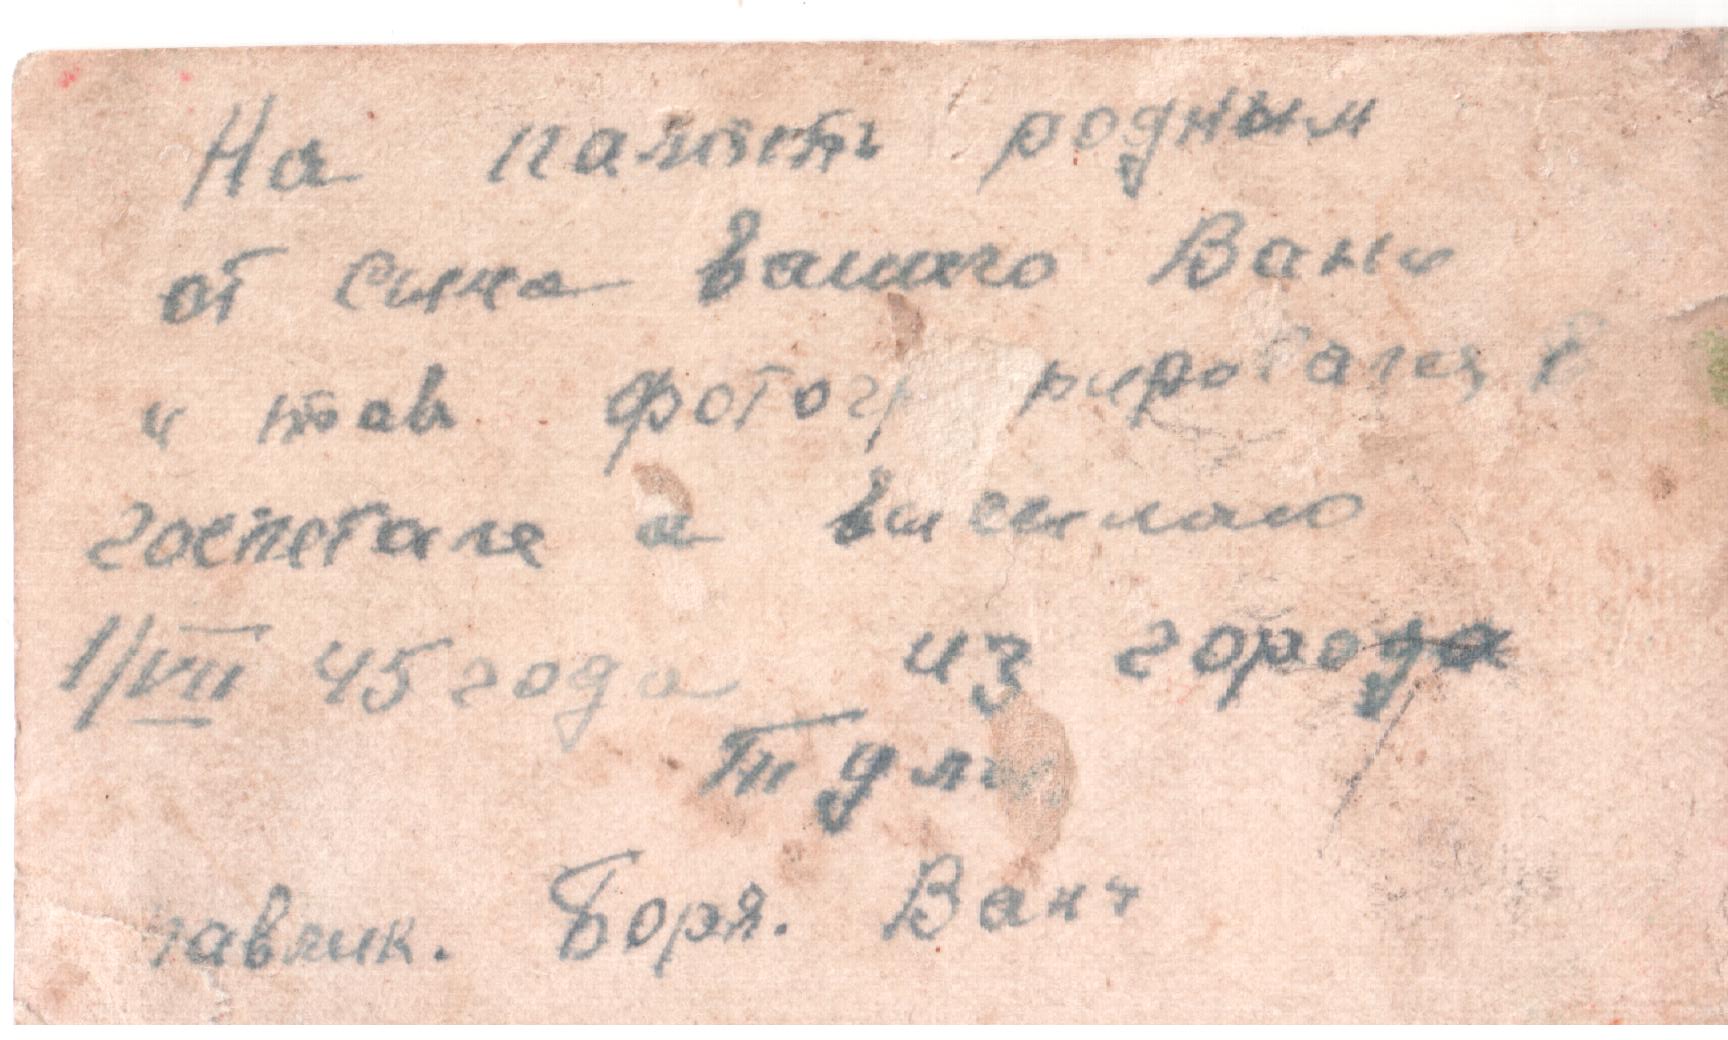 На память родным
от сына вашаго Вани
и тов фотогр рировался в
госпетале и высылаю
1/VII 45 года из города
Тулы
павлик. Боря. Ваня